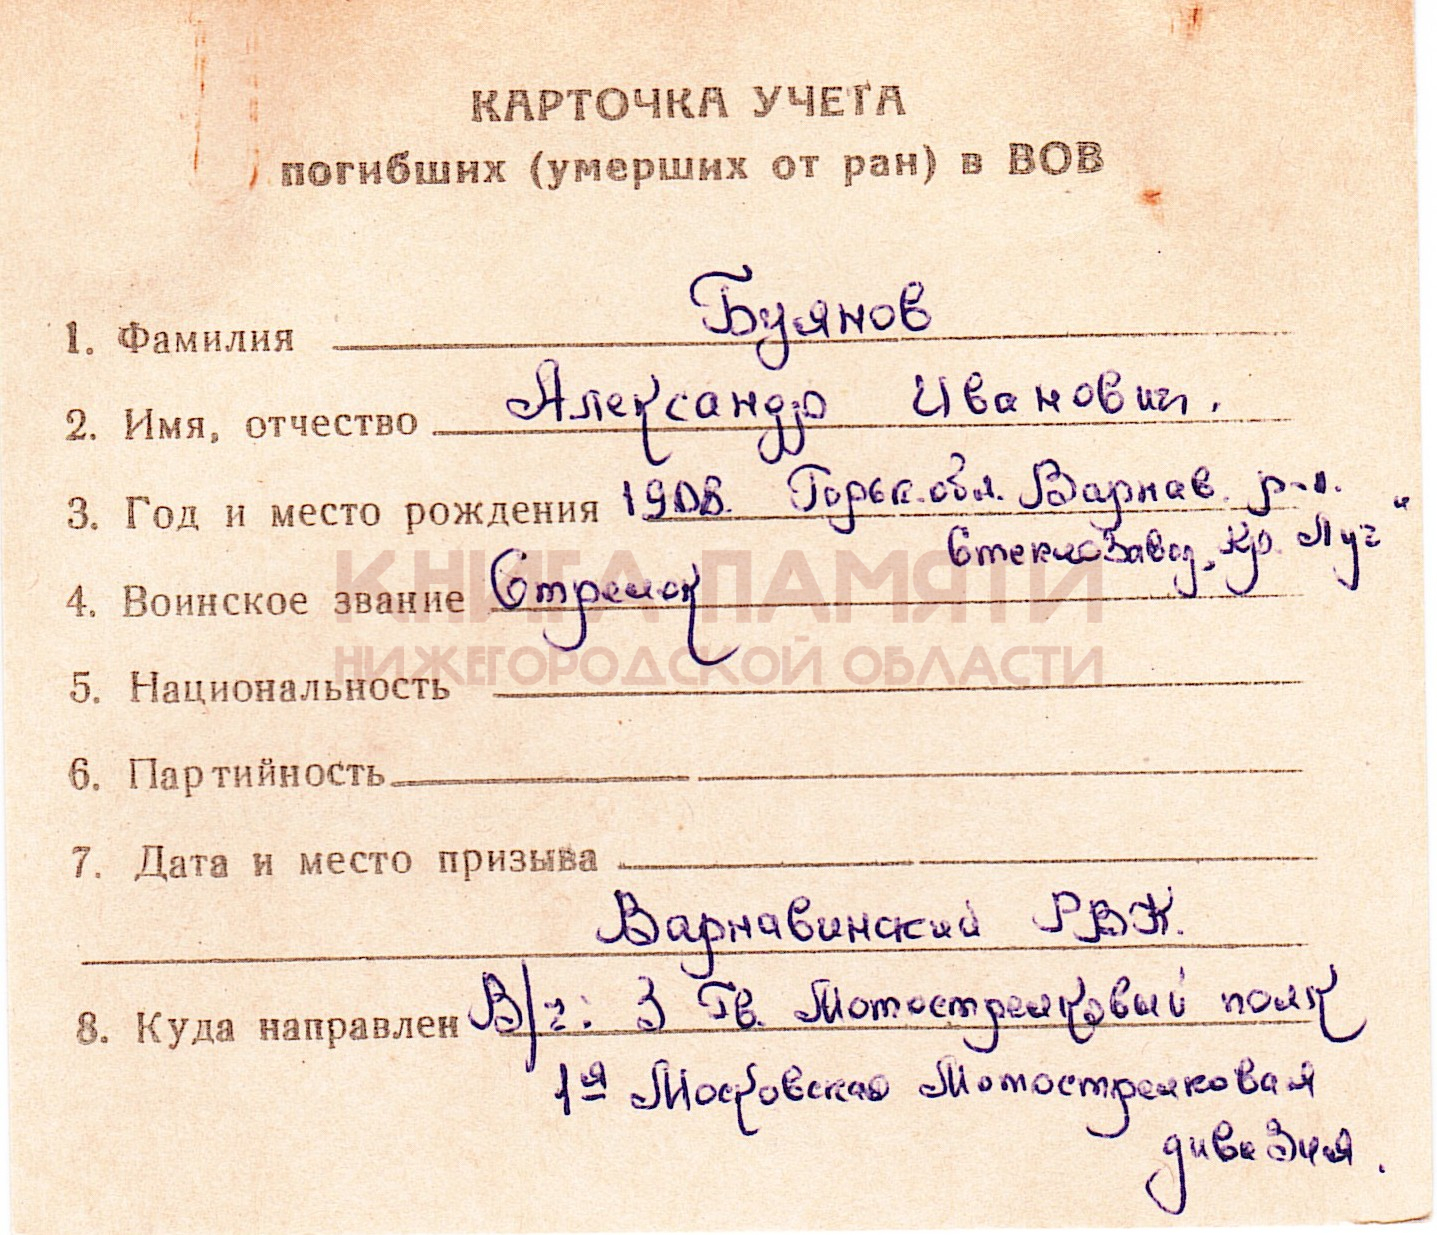 КАРТОЧКА УЧЕТА
погибших (умерших от ран) в ВОВ
1. Фамилия Буянов
2. Имя, отчество Александр Иванович.
3. Год и место рождения 1908. Горьк. обл. Варнав. р-н.
Стеклозавод „Кр. Луч"
4. Воинское звание Стрелок
КНИГА ПАМЯТИ
НИЖЕГОРОДСКОЙ ОБЛАСТИ
5. Национальность
6. Партийность
7. Дата и место призыва
Варнавинский РВК.
8. Куда направлен В/ч: 3 Гв. Мотострелковый полк
1я Московская Мотострелковая
дивизия.